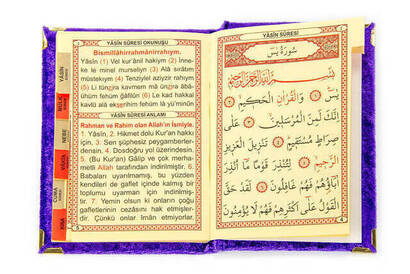 YÂSİN SÛRESİ OKUNUŞU
Bismillâhirrahmânirrahıym.
Yâsîn (1) Vel kur'ânil hakiym (2) İnne-
ke le minel murseliyn (3) Alâ sırâtım
müstekıym (4) Tenziylel aziyzir rahıym
(5) Li tünzira kavmem mâ ünzira âbâ-
ühüm fehüm ğâfilûn (6) Le kad hakkal
kavlü alâ ekserihim fehüm lâ yü'minûn
YÂSİN SÛRESİ ANLAMI
Rahman ve Rahim olan Allah'ın ismiyle.
1. Yâsin, 2. Hikmet dolu Kur'an hakkı
için, 3. Sen şüphesiz peygamberler-
densin, 4. Dosdoğru yol üzerindesin.
5. (Bu Kur'an) Gâlip ve çok merha-
metli Allah tarafından indirilmiştir. 6.
Babaları uyarılmamış, bu yüzden
kendileri de gaflet içinde kalmış bir
toplumu uyarman için indirilmiş-
tir. 7. Yemin olsun ki onların çoğu
gafletlerinin cezâsını hak etmişler-
dir. Çünkü onlar îmân etmiyorlar,
YÂSİN
MÜLK
NEBE
VÂKIA
CUMA
KISA
YÂSİN SÛRESİ
سورة يس
بسم الله الرحمن الرحيم
يس ۝ وَالْقُرْآنِ الْحَكِيمِ ۝
إِنَّكَ لَمِنَ الْمُرْسَلِينَ ۝ عَلَى
صِرَاطٍ مُسْتَقِيمٍ ۝ تَنْزِيلَ الْعَزِيزِ
الرَّحِيمِ ۝ لِتُنْذِرَ قَوْمًا مَا أُنْذِرَ
آبَاؤُهُمْ فَهُمْ غَافِلُونَ ۝ لَقَدْ حَقَّ
الْقَوْلُ عَلَى أَكْثَرِهِمْ فَهُمْ لَا يُؤْمِنُونَ